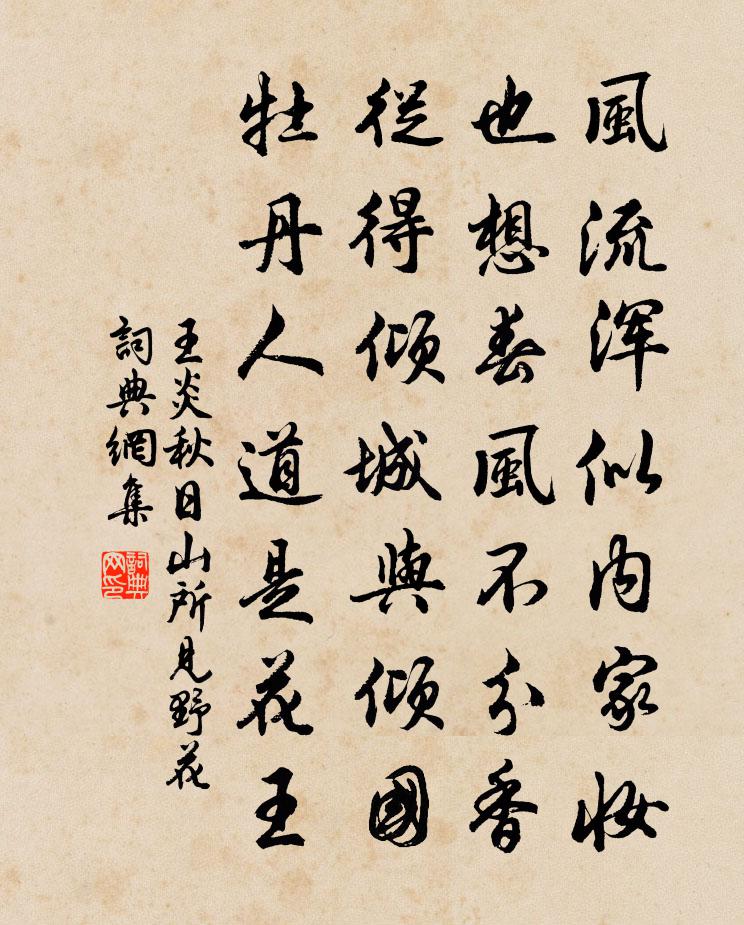 風流浑似内家妆
也想春風不分香
從得傾城與傾國
牡丹人道是花王
王炎秋日山所見野花
詞典網集
詞典网印